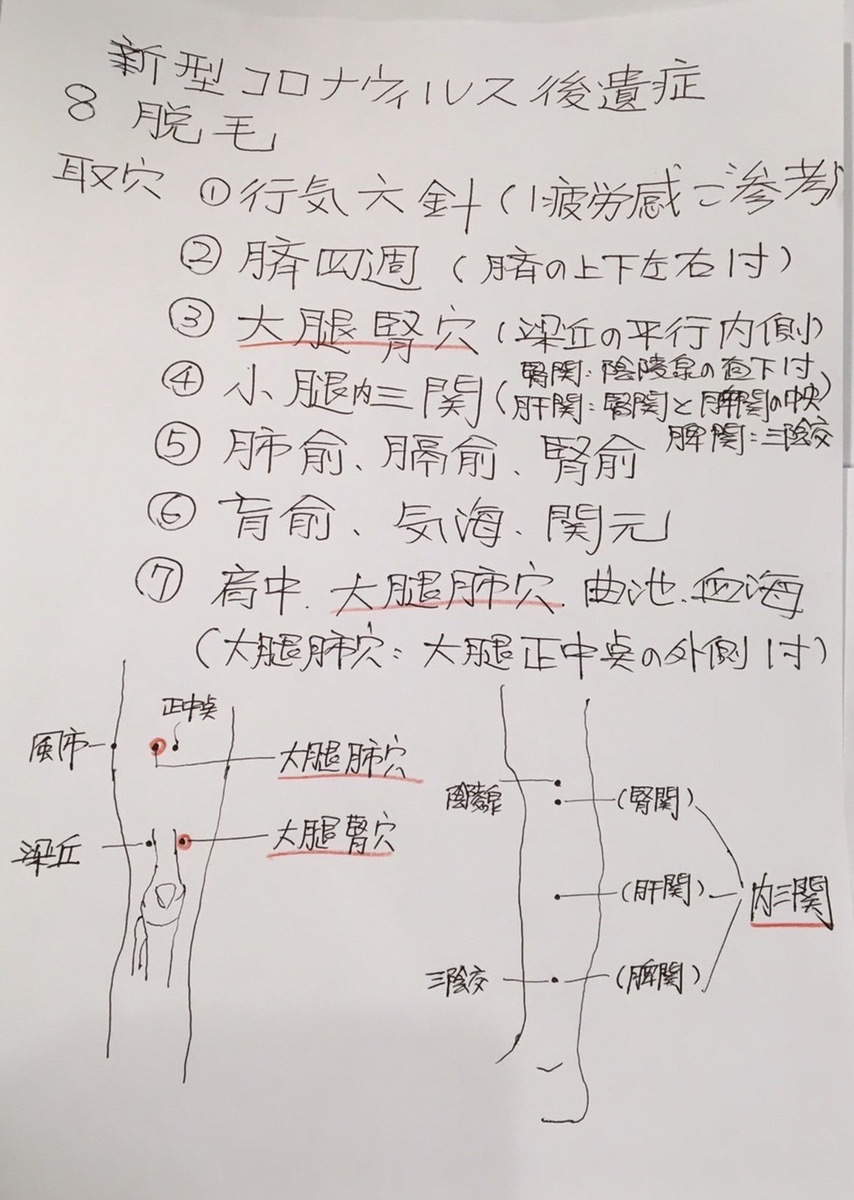 新型コロナウィルス後遺症
8 脱毛
取穴 ①行気六針(1疲労感ご参考)
②臍四週(臍の上下左右1寸)
③大腿腎穴(梁丘の平行内側)
④小腿内三関(腎関:陰陵泉の直下1寸、
肝関:腎関と脾関の中央)
脾関:三陰交
⑤肺俞、膈俞、腎俞
⑥肓俞、気海、関元
⑦肩中、大腿肺穴、曲池、血海
(大腿肺穴:大腿正中点の外側1寸)
正中点
風市
大腿肺穴
梁丘
大腿腎穴
陰陵泉
(腎関)
(肝関)
内三関
三陰交
(脾関)